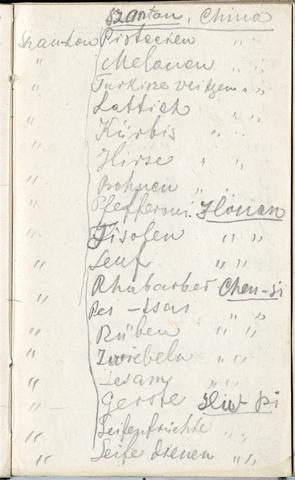 Szantan, China
Szantan Pistacien " "
" Melonen " "
" Türkisze weitzen " "
" Lattich " "
" Kürbis " "
" Hirse " "
" Bohnen " "
" Pfefferoni Honan
" Fisolen " "
" Senf " "
" Rhabarber Chen-si
" " "
" Rüben " "
" Zwiebeln " "
" Sesam " "
" Gerste
" Seifenfrichte " "
" Seife dienen " "